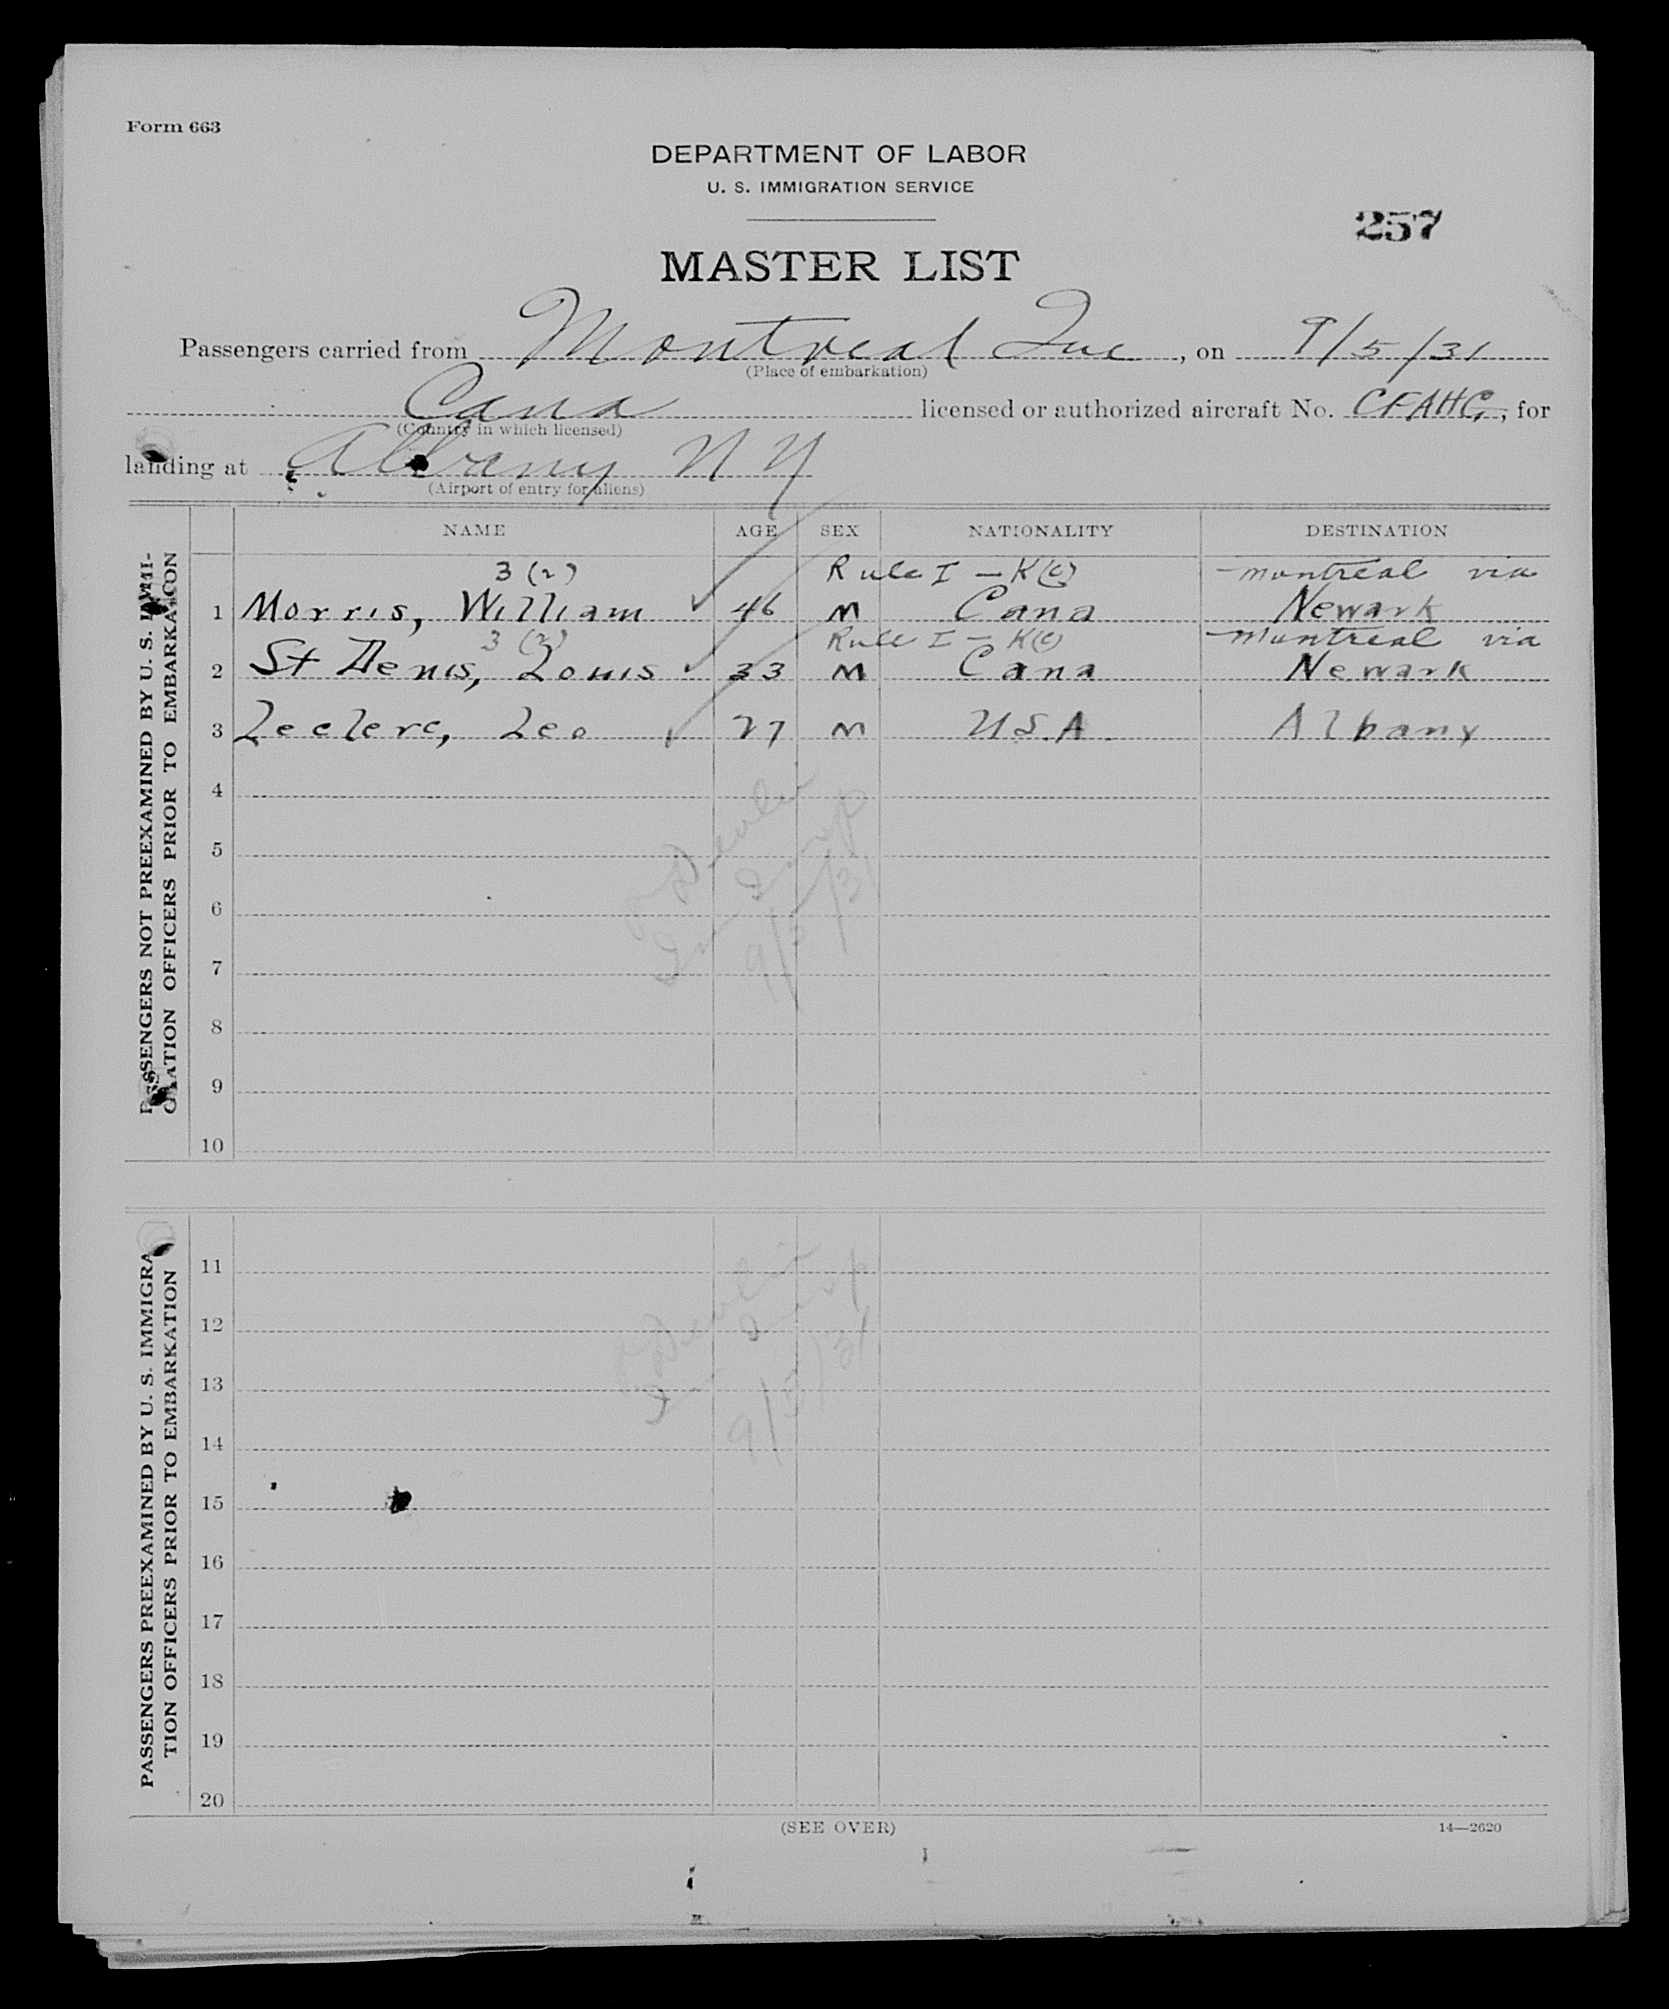 Form 663
DEPARTMENT OF LABOR
U. S. IMMIGRATION SERVICE
257
MASTER LIST
Passengers carried from Montreal Que, on 9/5/31
(Place of embarkation)
Cana licensed or authorized aircraft No. CFAHG, for
(Country in which licensed)
landing at Albany N Y
(Airport of entry for aliens)
NAME AGE SEX NATIONALITY DESTINATION
PASSENGERS NOT PREEXAMINED BY U. S. IMMI-
GRATION OFFICERS PRIOR TO EMBARKATION
3 (2) Rule I - K(c) montreal via
1 Morris, William 46 M Cana Newark
3 (2) Rule I - K(c) montreal via
2 St Denis, Louis 33 M Cana Newark
3 Leclerc, Leo 27 M USA Albany
4
5
6
7
8
9
10
9/5/31
PASSENGERS PREEXAMINED BY U. S. IMMIGRA
TION OFFICERS PRIOR TO EMBARKATION
11
12
13
14
15
16
17
18
19
20
9/5/31
(SEE OVER)
14—2620